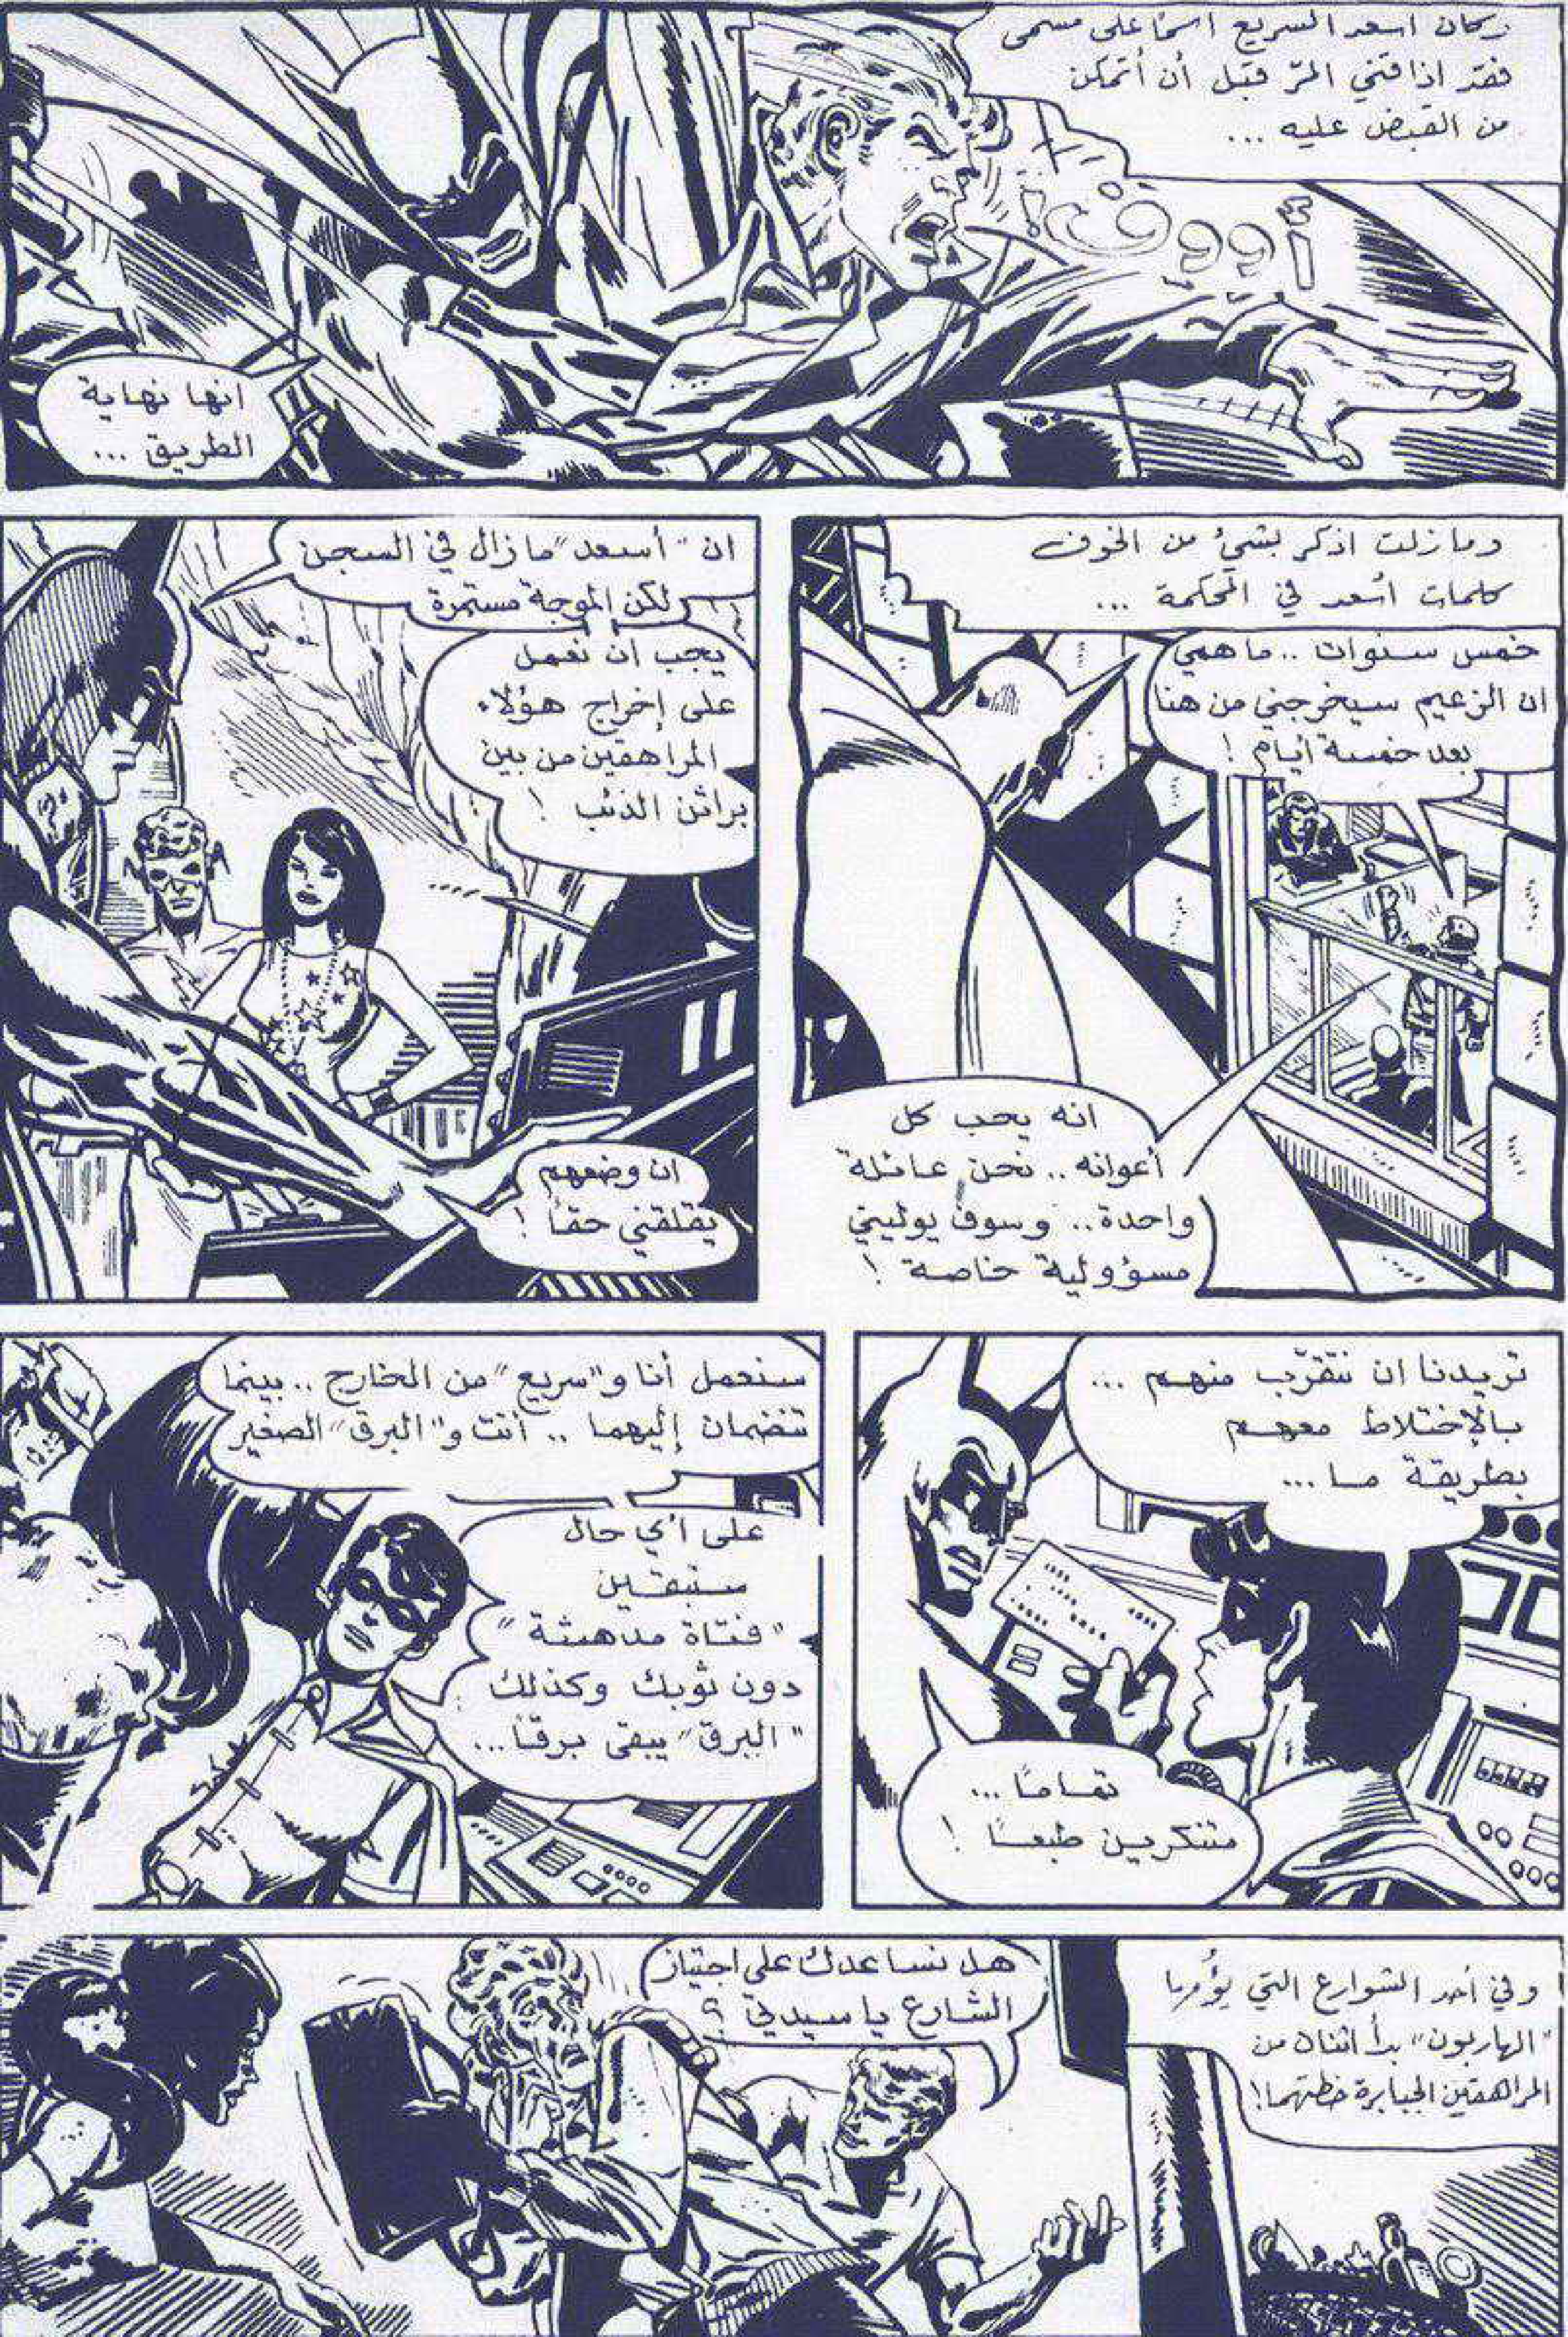 وكان اسعد السريع اسمًا على مسمى
فقد اذاقني المرّ قبل أن أتمكن
من القبض عليه ...
أووف!
انها نهاية
الطريق ...
وما زلت اذكر بشيء من الخوف
كلمات أسعد في المحكمة ...
خمس سنوات .. ما همي
ان الزعيم سيخرجني من هنا
بعد خمسة أيام !
انه يحب كل
أعوانه .. نحن عائلة
واحدة.. وسوف يوليني
مسؤولية خاصة !
ان "أسعد" ما زال في السجن
لكن الموجة مستمرة
يجب ان نعمل
على إخراج هؤلاء
المراهقين من بين
براثن الذئب !
ان وضعهم
يقلقني حقاً !
تريدنا ان نتقرّب منهم ...
بالإختلاط معهم
بطريقة ما ...
تماماً ...
متنكرين طبعاً !
سنعمل أنا و"سريع" من الخارج .. بينما
تنضمان إليهما .. أنت و"البرق" الصغير
على أي حال
ستبقين
"فتاة مدهشة"
دون ثوبك وكذلك
"البرق" يبقى برقاً ...
وفي أحد الشوارع التي يؤمها
"الهاربون" بدأ اثنان من
المراهقين الجبابرة خطتهما!
هل نساعدك على اجتياز
الشارع يا سيدي ؟